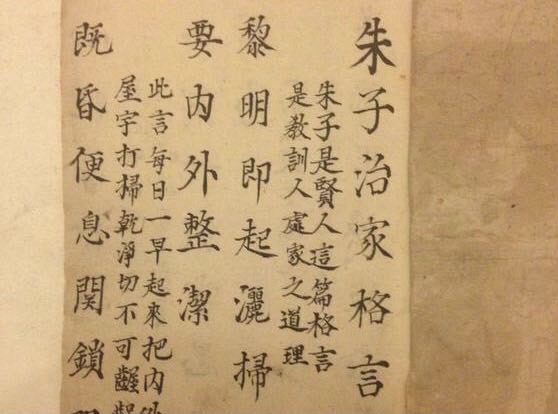 朱子治家格言
朱子是賢人這篇格言
是教訓人處家之道理
黎明即起灑掃
要内外整潔
此言每日一早起來把内
屋宇打掃乾淨切不可齷齪
既昏便息関鎖